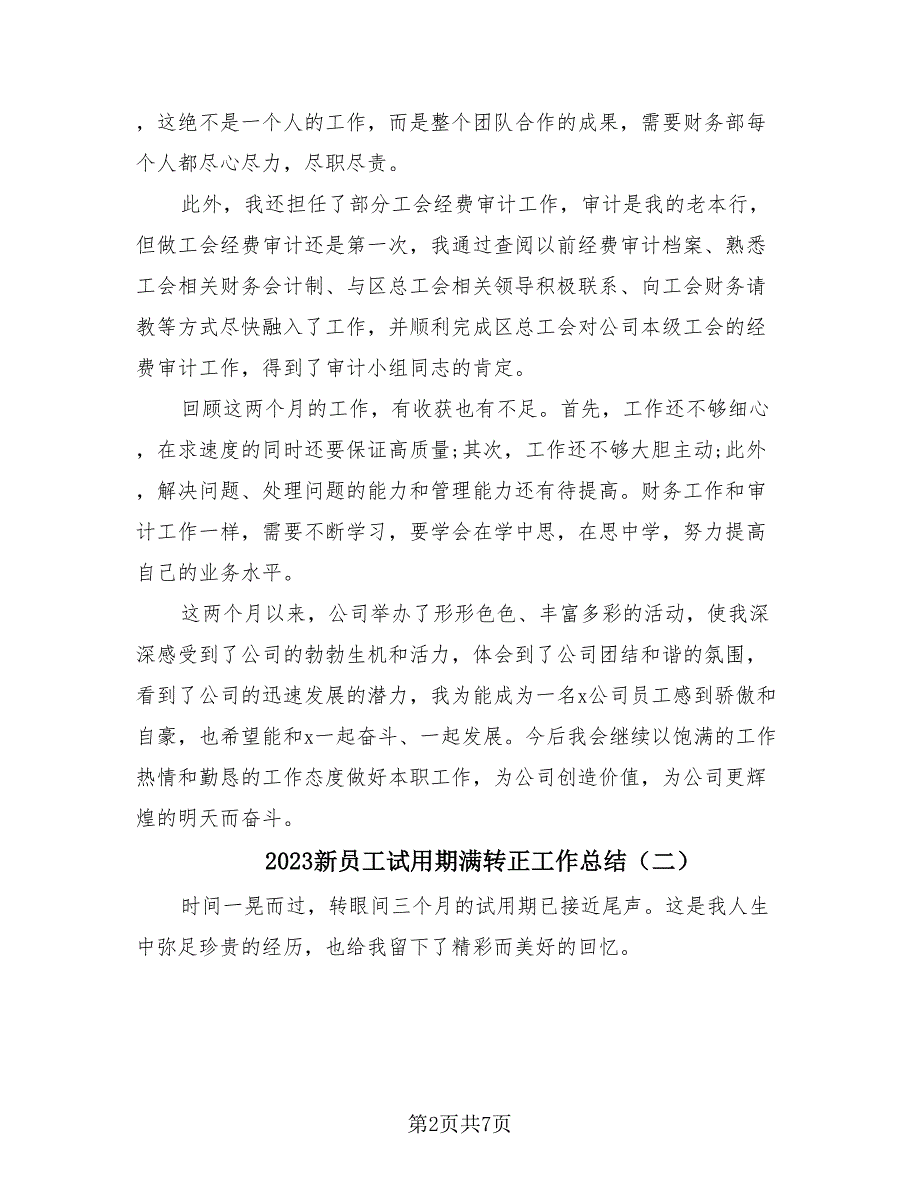 ，这绝不是一个人的工作，而是整个团队合作的成果，需要财务部每
个人都尽心尽力，尽职尽责。
此外，我还担任了部分工会经费审计工作，审计是我的老本行，
但做工会经费审计还是第一次，我通过查阅以前经费审计档案、熟悉
工会相关财务会计制、与区总工会相关领导积极联系、向工会财务请
教等方式尽快融入了工作，并顺利完成区总工会对公司本级工会的经
费审计工作，得到了审计小组同志的肯定。
回顾这两个月的工作，有收获也有不足。首先，工作还不够细心
，在求速度的同时还要保证高质量;其次，工作还不够大胆主动;此外
，解决问题、处理问题的能力和管理能力还有待提高。财务工作和审
计工作一样，需要不断学习，要学会在学中思，在思中学，努力提高
自己的业务水平。
这两个月以来，公司举办了形形色色、丰富多彩的活动，使我深
深感受到了公司的勃勃生机和活力，体会到了公司团结和谐的氛围，
看到了公司的迅速发展的潜力，我为能成为一名x公司员工感到骄傲和
自豪，也希望能和x一起奋斗、一起发展。今后我会继续以饱满的工作
热情和勤恳的工作态度做好本职工作，为公司创造价值，为公司更辉
煌的明天而奋斗。
2023新员工试用期满转正工作总结（二）
时间一晃而过，转眼间三个月的试用期已接近尾声。这是我人生
中弥足珍贵的经历，也给我留下了精彩而美好的回忆。
第2页共7页